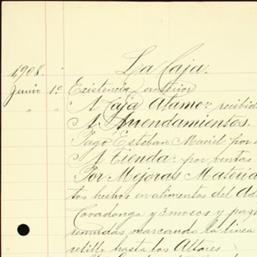 La Caja.
1908.
Junio 1º Existencia anterior
A Caja Atamor recibid
A Arrendamientos.
Pagó Esteban Maciel por
A Tienda: por ventas
Por Mejoras Materia
tos hechos en alimentos del Ad
Covadonga y 3 mozos y
marcando la linea
hasta los Altares